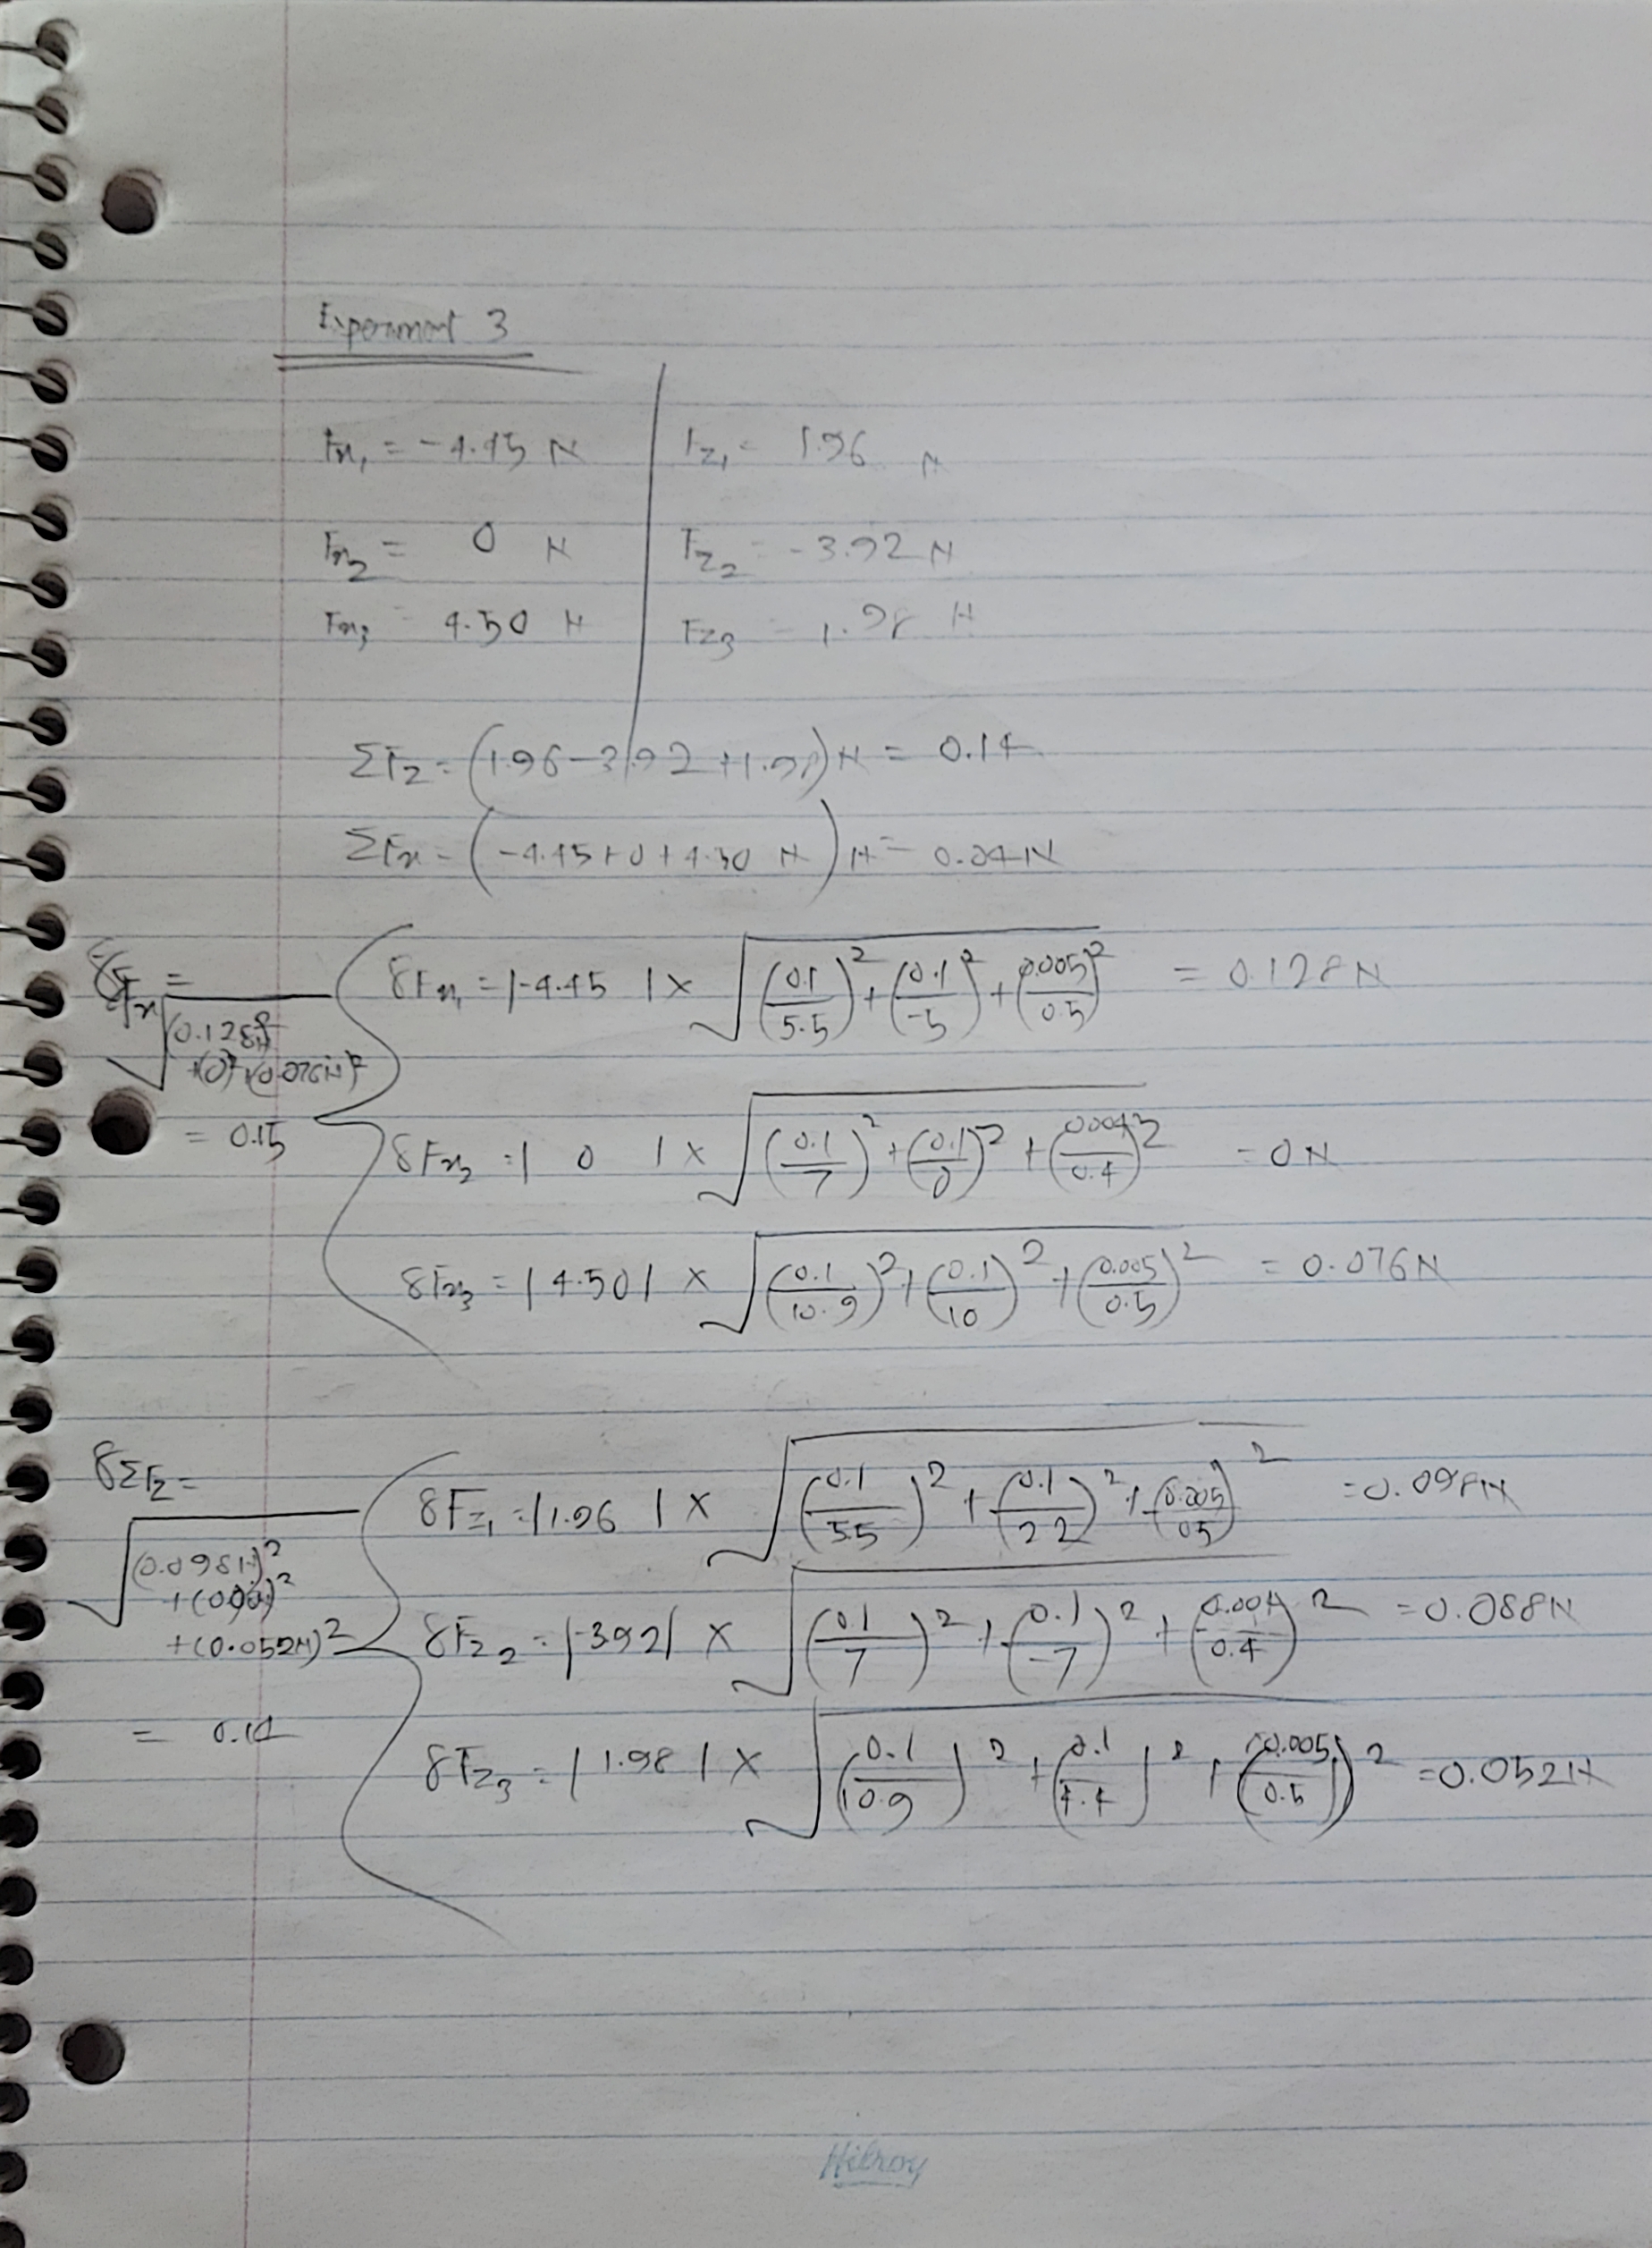 Experiment 3
Fx₁ = -4.45 N
Fz₁ = 1.96 N
Fx₂ = 0 N
Fz₂ = -3.92 N
Fx₃ = 4.50 N
Fz₃ = 1.98 N
ΣFz = (1.96-3.92+1.98)N = 0.14
ΣFx = (-4.45+0+4.50 N)N = 0.04N
δFx₁ = |-4.45| × √((0.1/5.5)²+(0.1/-5)²+(0.005/0.5)²) = 0.128N
δFx₂ = | 0 | × √((0.1/7)²+(0.1/0)²+(0.004/0.4)²) = 0N
δFx₃ = |4.50| × √((0.1/10.9)²+(0.1/10)²+(0.005/0.5)²) = 0.076N
= 0.15
δΣFz =
√((0.098N)²
+(0.052N)²
δFz₁ = |1.96| × √((0.1/5.5)²+(0.1/2.2)²+(0.005/0.5)²) = 0.098N
δFz₂ = |-3.92| × √((0.1/7)²+(0.1/-7)²+(0.004/0.4)²) = 0.088N
δFz₃ = |1.98| × √((0.1/10.9)²+(0.1/4.4)²+(0.005/0.5)²) = 0.052N
Hilroy